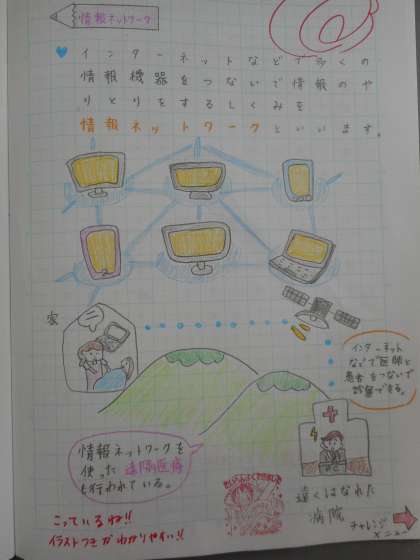 情報ネットワーク
インターネットなどで多くの
情報機器をつないで情報のや
りとりをするしくみを
情報ネットワークといいます。
家
インターネット
などで医師と
患者をつないで
診察できる。
情報ネットワークを
使った遠隔医療
も行われている。
遠くはなれた
病院
チャレンジ
メニュー
こっているね!!
イラストつきがわかりやすい!!